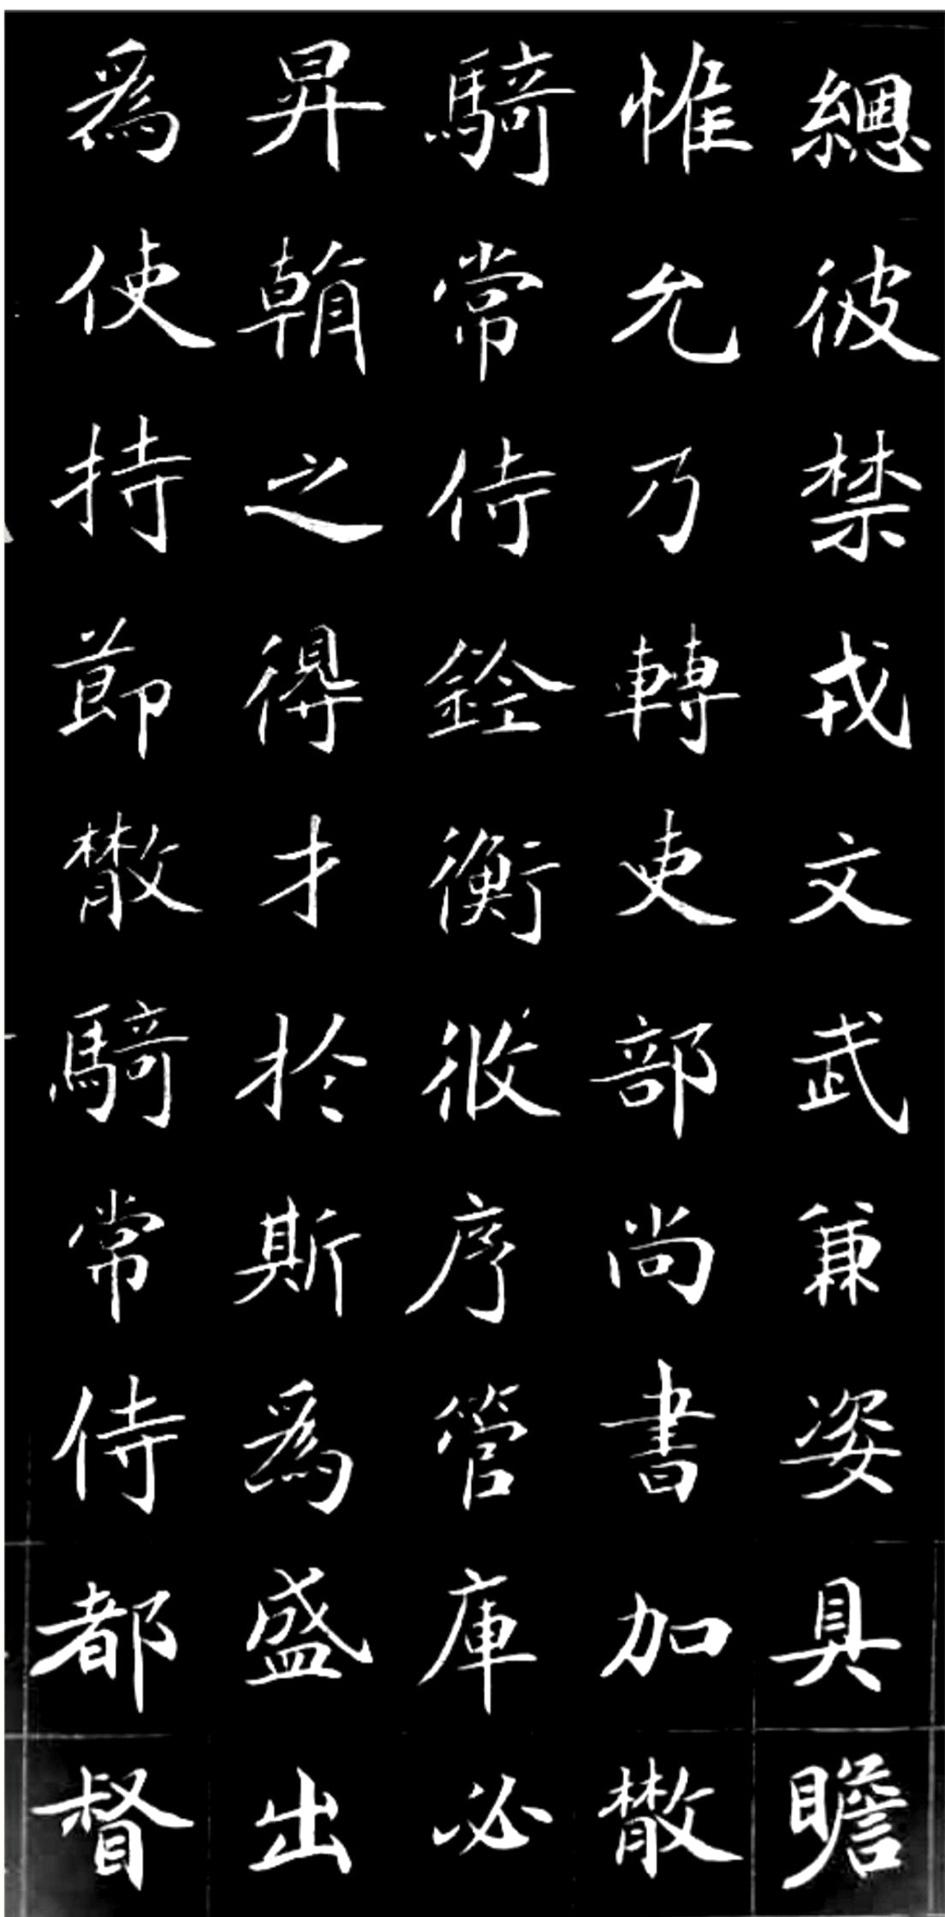 總彼禁戎文武兼姿具瞻
惟允乃轉吏部尚書加散
騎常侍銓衡攸序管庫必
昇翰之得才於斯爲盛出
爲使持節散騎常侍都督